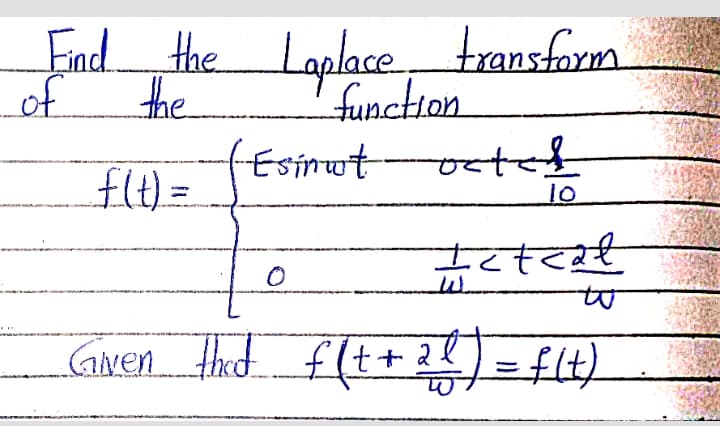 Find the Laplace transform
of the function
f(t) = { E sin wt 0<t<l/10
0 1/w <t<2l/w
Given that f(t + 2l/w) = f(t)